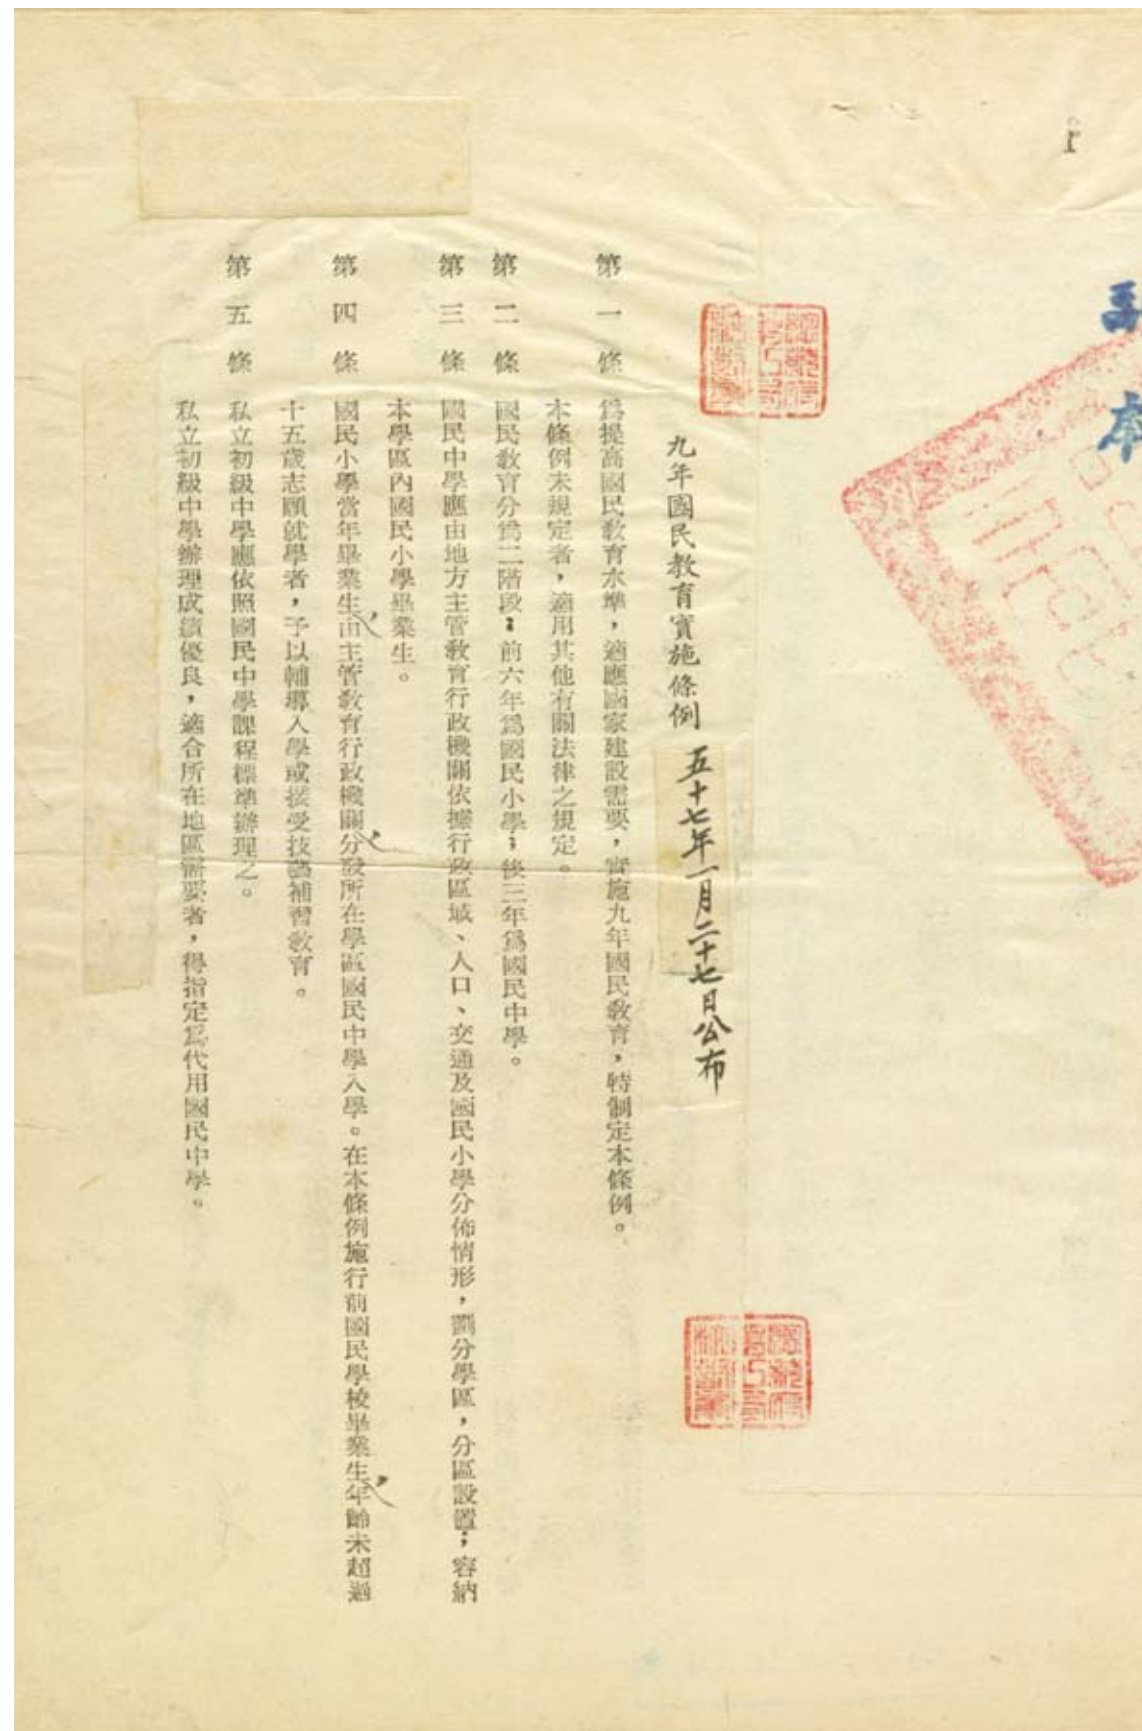 副本
九年國民教育實施條例 五十七年一月二十七日公布
第一條 爲提高國民教育水準，適應國家建設需要，實施九年國民教育，特制定本條例。
本條例未規定者，適用其他有關法律之規定。
第二條 國民教育分爲二階段：前六年爲國民小學；後三年爲國民中學。
第三條 國民中學應由地方主管教育行政機關依據行政區域、人口、交通及國民小學分佈情形，劃分學區，分區設置；容納
本學區內國民小學畢業生。
第四條 國民小學當年畢業生由主管教育行政機關分發所在學區國民中學入學。在本條例施行前國民學校畢業生年齡未超過
十五歲志願就學者，予以輔導入學或接受技藝補習教育。
第五條 私立初級中學應依照國民中學課程標準辦理之。
私立初級中學辦理成績優良，適合所在地區需要者，得指定爲代用國民中學。